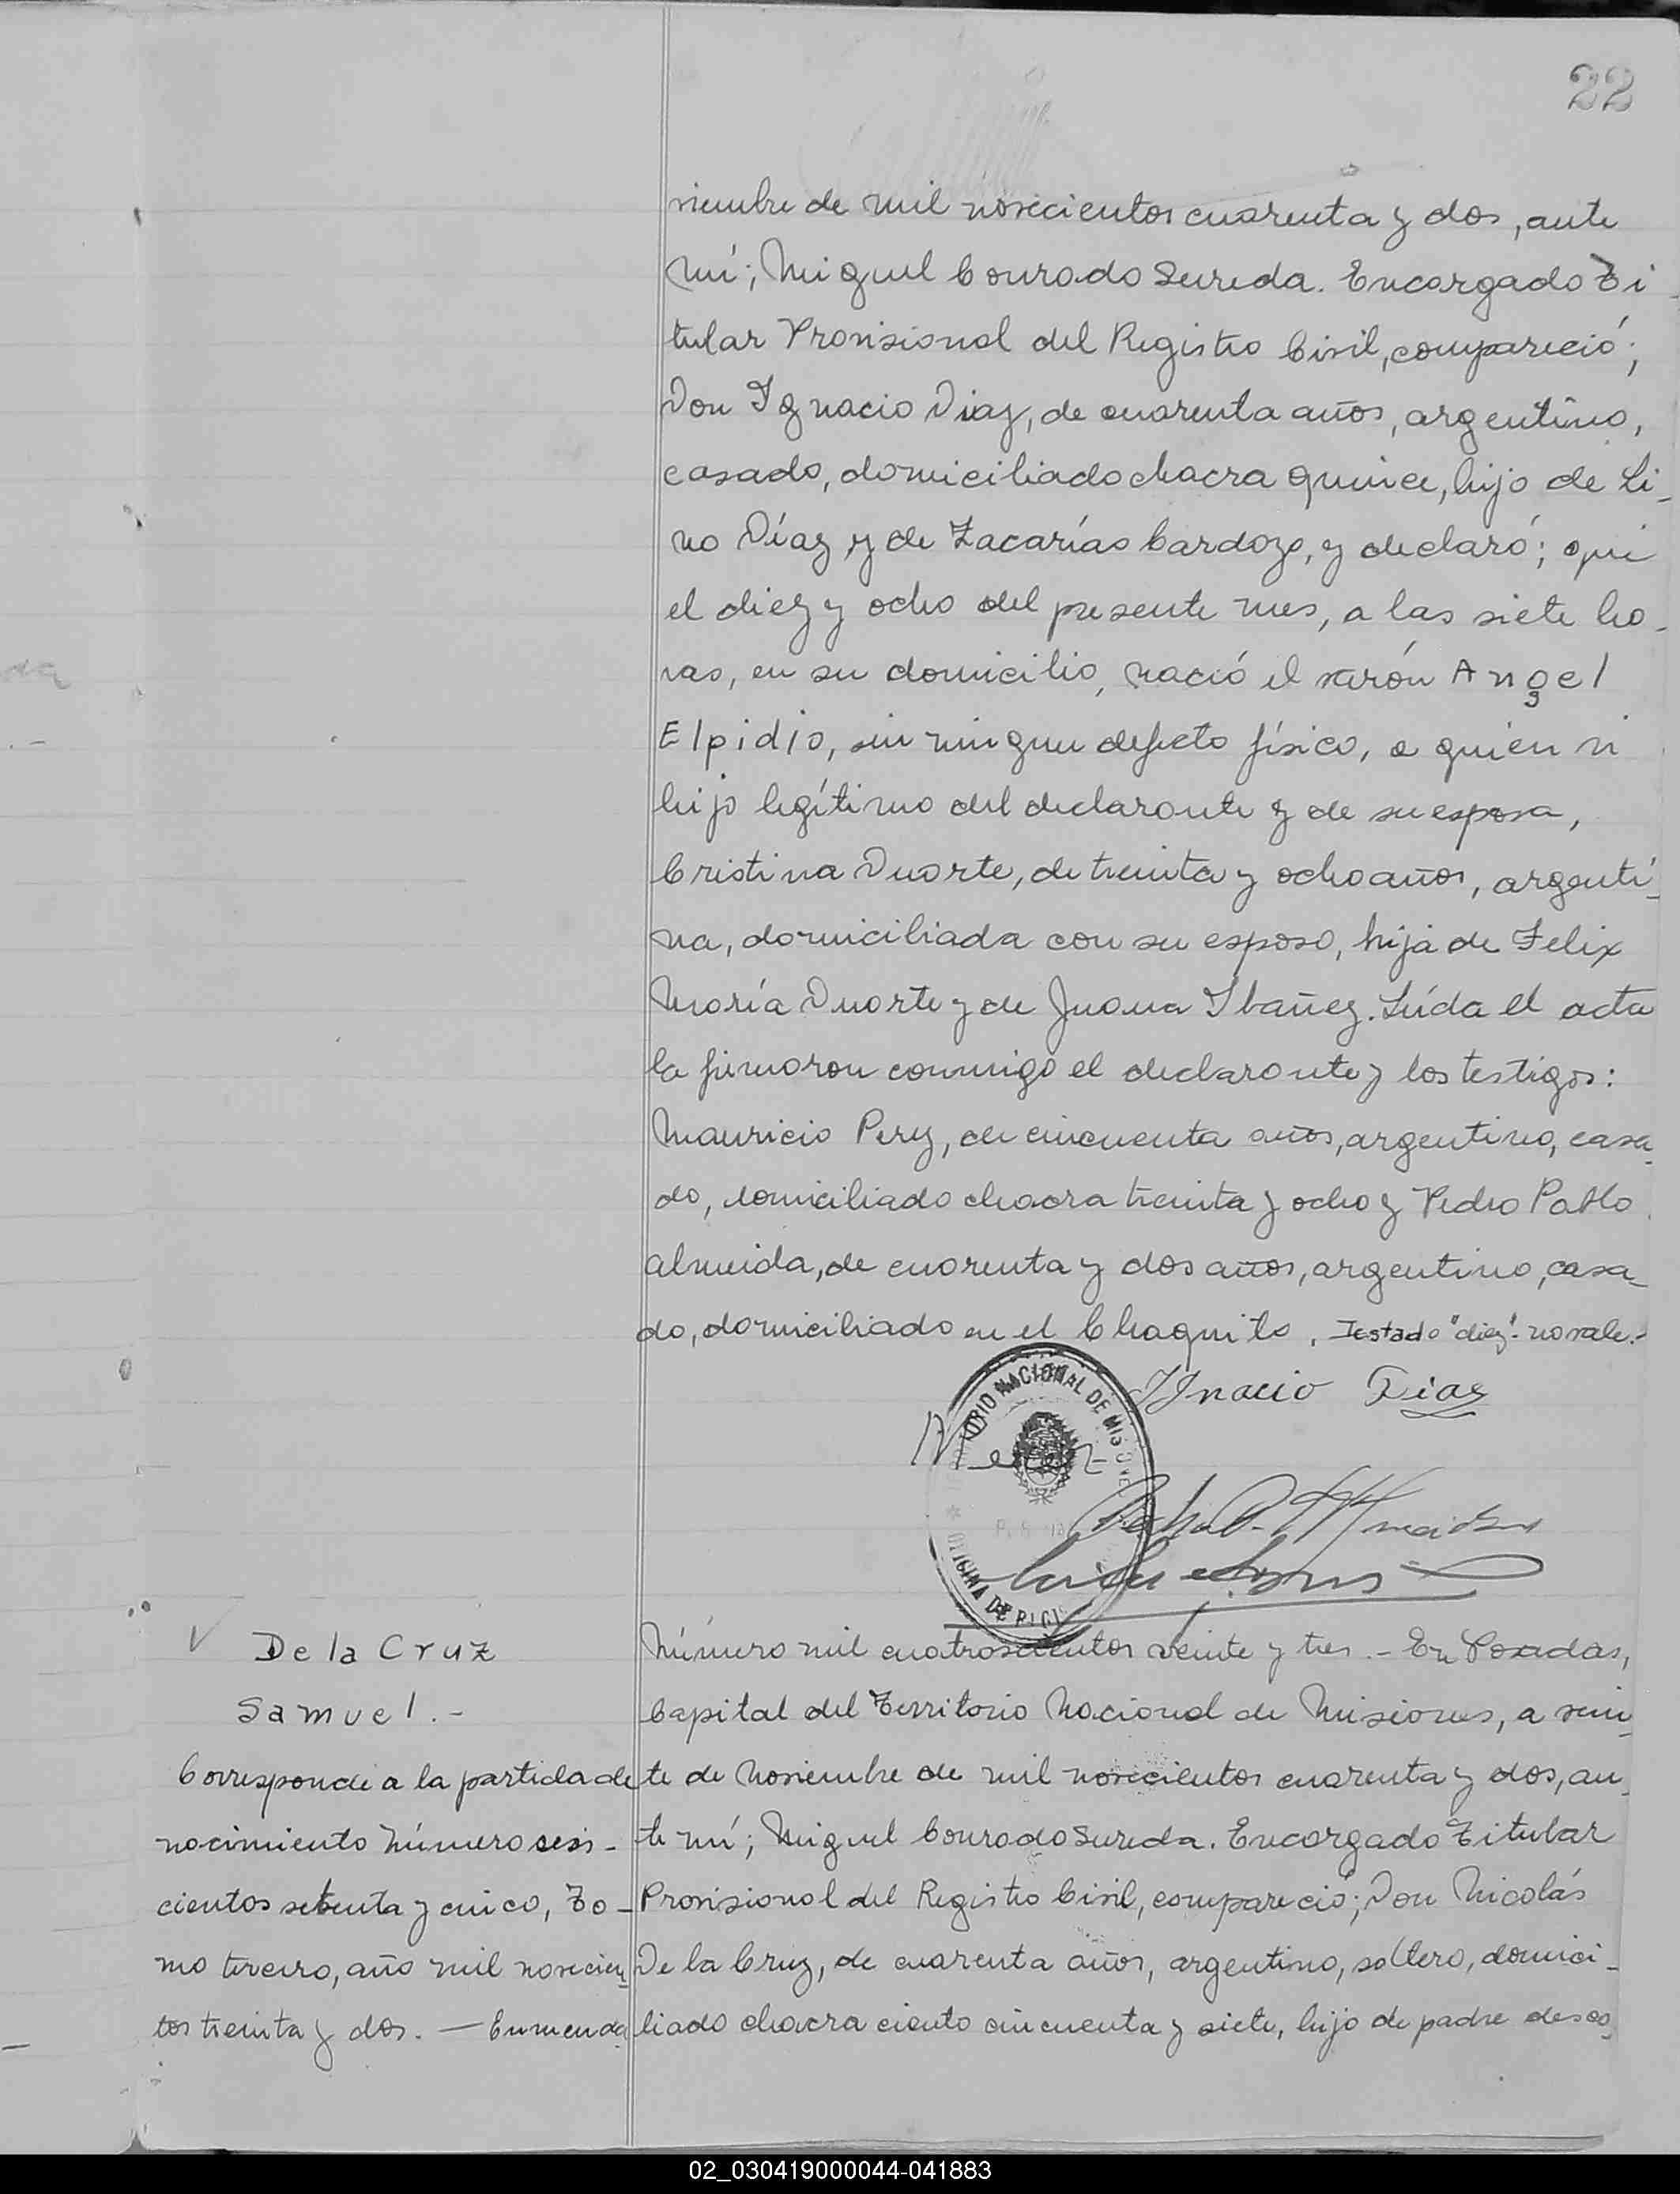 22
viembre de mil novecientos cuarenta y dos, ante
mí; Miguel Conrado Sureda. Encargado Ti
tular Provisional del Registro Civil, compareció;
Don Ignacio Diaz, de cuarenta años, argentino,
casado, domiciliado chacra quince, hijo de Li_
no Díaz y de Zacarías Cardozo, y declaró; que
el diez y ocho del presente mes, a las siete ho_
ras, en su domicilio, nació el varón Angel
Elpidio, sin ningun defecto físico, a quien vi
hijo legítimo del declarante y de su esposa,
Cristina Duarte, de treinta y ocho años, argenti_
na, domiciliada con su esposo, hija de Felix
María Duarte y de Juana Ibañez. Leída el acta
la firmaron conmigo el declarante y los testigos:
Mauricio Pery, de cincuenta años, argentino, casa_
do, domiciliado chacra treinta y ocho y Pedro Pablo
Almeida, de cuarenta y dos años, argentino, casa_
do, domiciliado en el Chaquito. Testado "diez" - no vale.-
IGnacio Diaz
NACIONAL DE MISIONES
OFICINA DE
De la Cruz
Samuel.-
Corresponde a la partida de
nacimiento número seis-
cientos setenta y cinco, To-
mo tercero, año mil novecien_
tos treinta y dos. — Enmenda
Número mil cuatroscientos veinte y tres.- En Posadas,
Capital del Territorio Nacional de Misiones, a vein_
te de Noviembre de mil novecientos cuarenta y dos, an_
te mí; Miguel Conrado Sureda. Encargado Titular
Provisional del Registro Civil, compareció; Don Nicolás
De la Cruz, de cuarenta años, argentino, soltero, domici_
liado chacra ciento cincuenta y siete, hijo de padre desco_
02_030419000044-041883